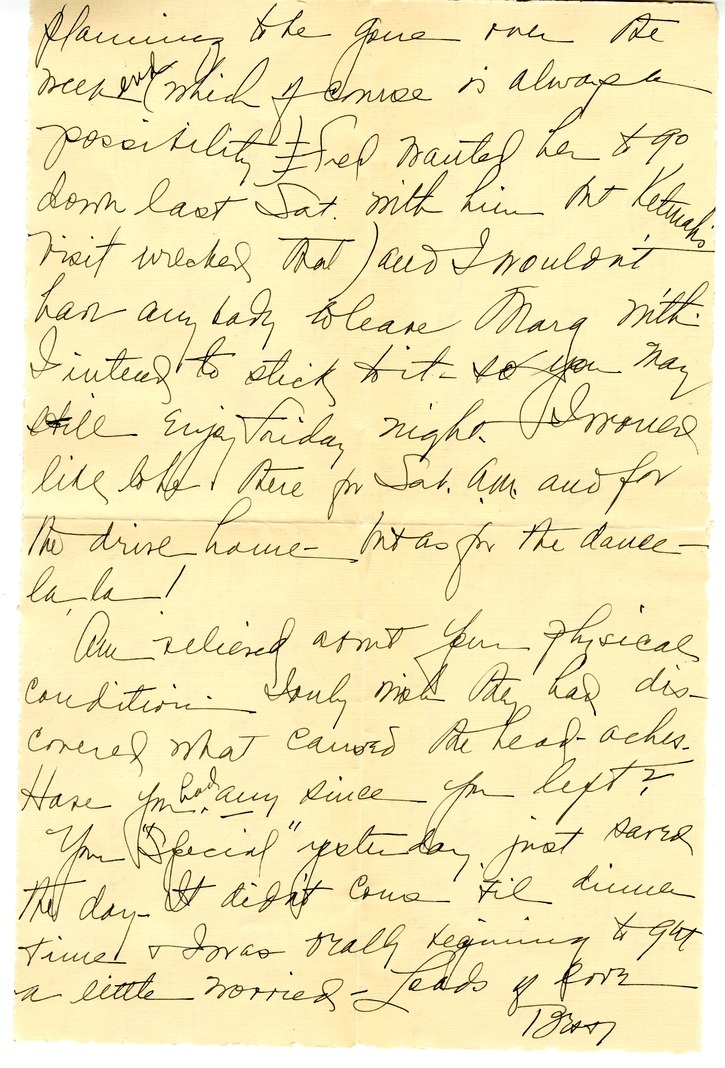 planning to be gone over the
weekend (which of course is always a
possibility) Fred wanted her to go
down last Sat. with him but
visit wrecked that) and I wouldn't
have any body to leave Marg with.
I intend to stick to it - so you may
still enjoy Friday night. I would
like to be there for Sat. a.m. and for
the drive home - but as for the dance -
la, la!
Am relieved about your physical
condition. I only wish they had dis-
covered what caused the head-aches.
Have you had any since you left?
Your "Special" yesterday just saved
the day - It didn't come til dinner
time & I was really beginning to get
a little worried - Loads of love
Bess